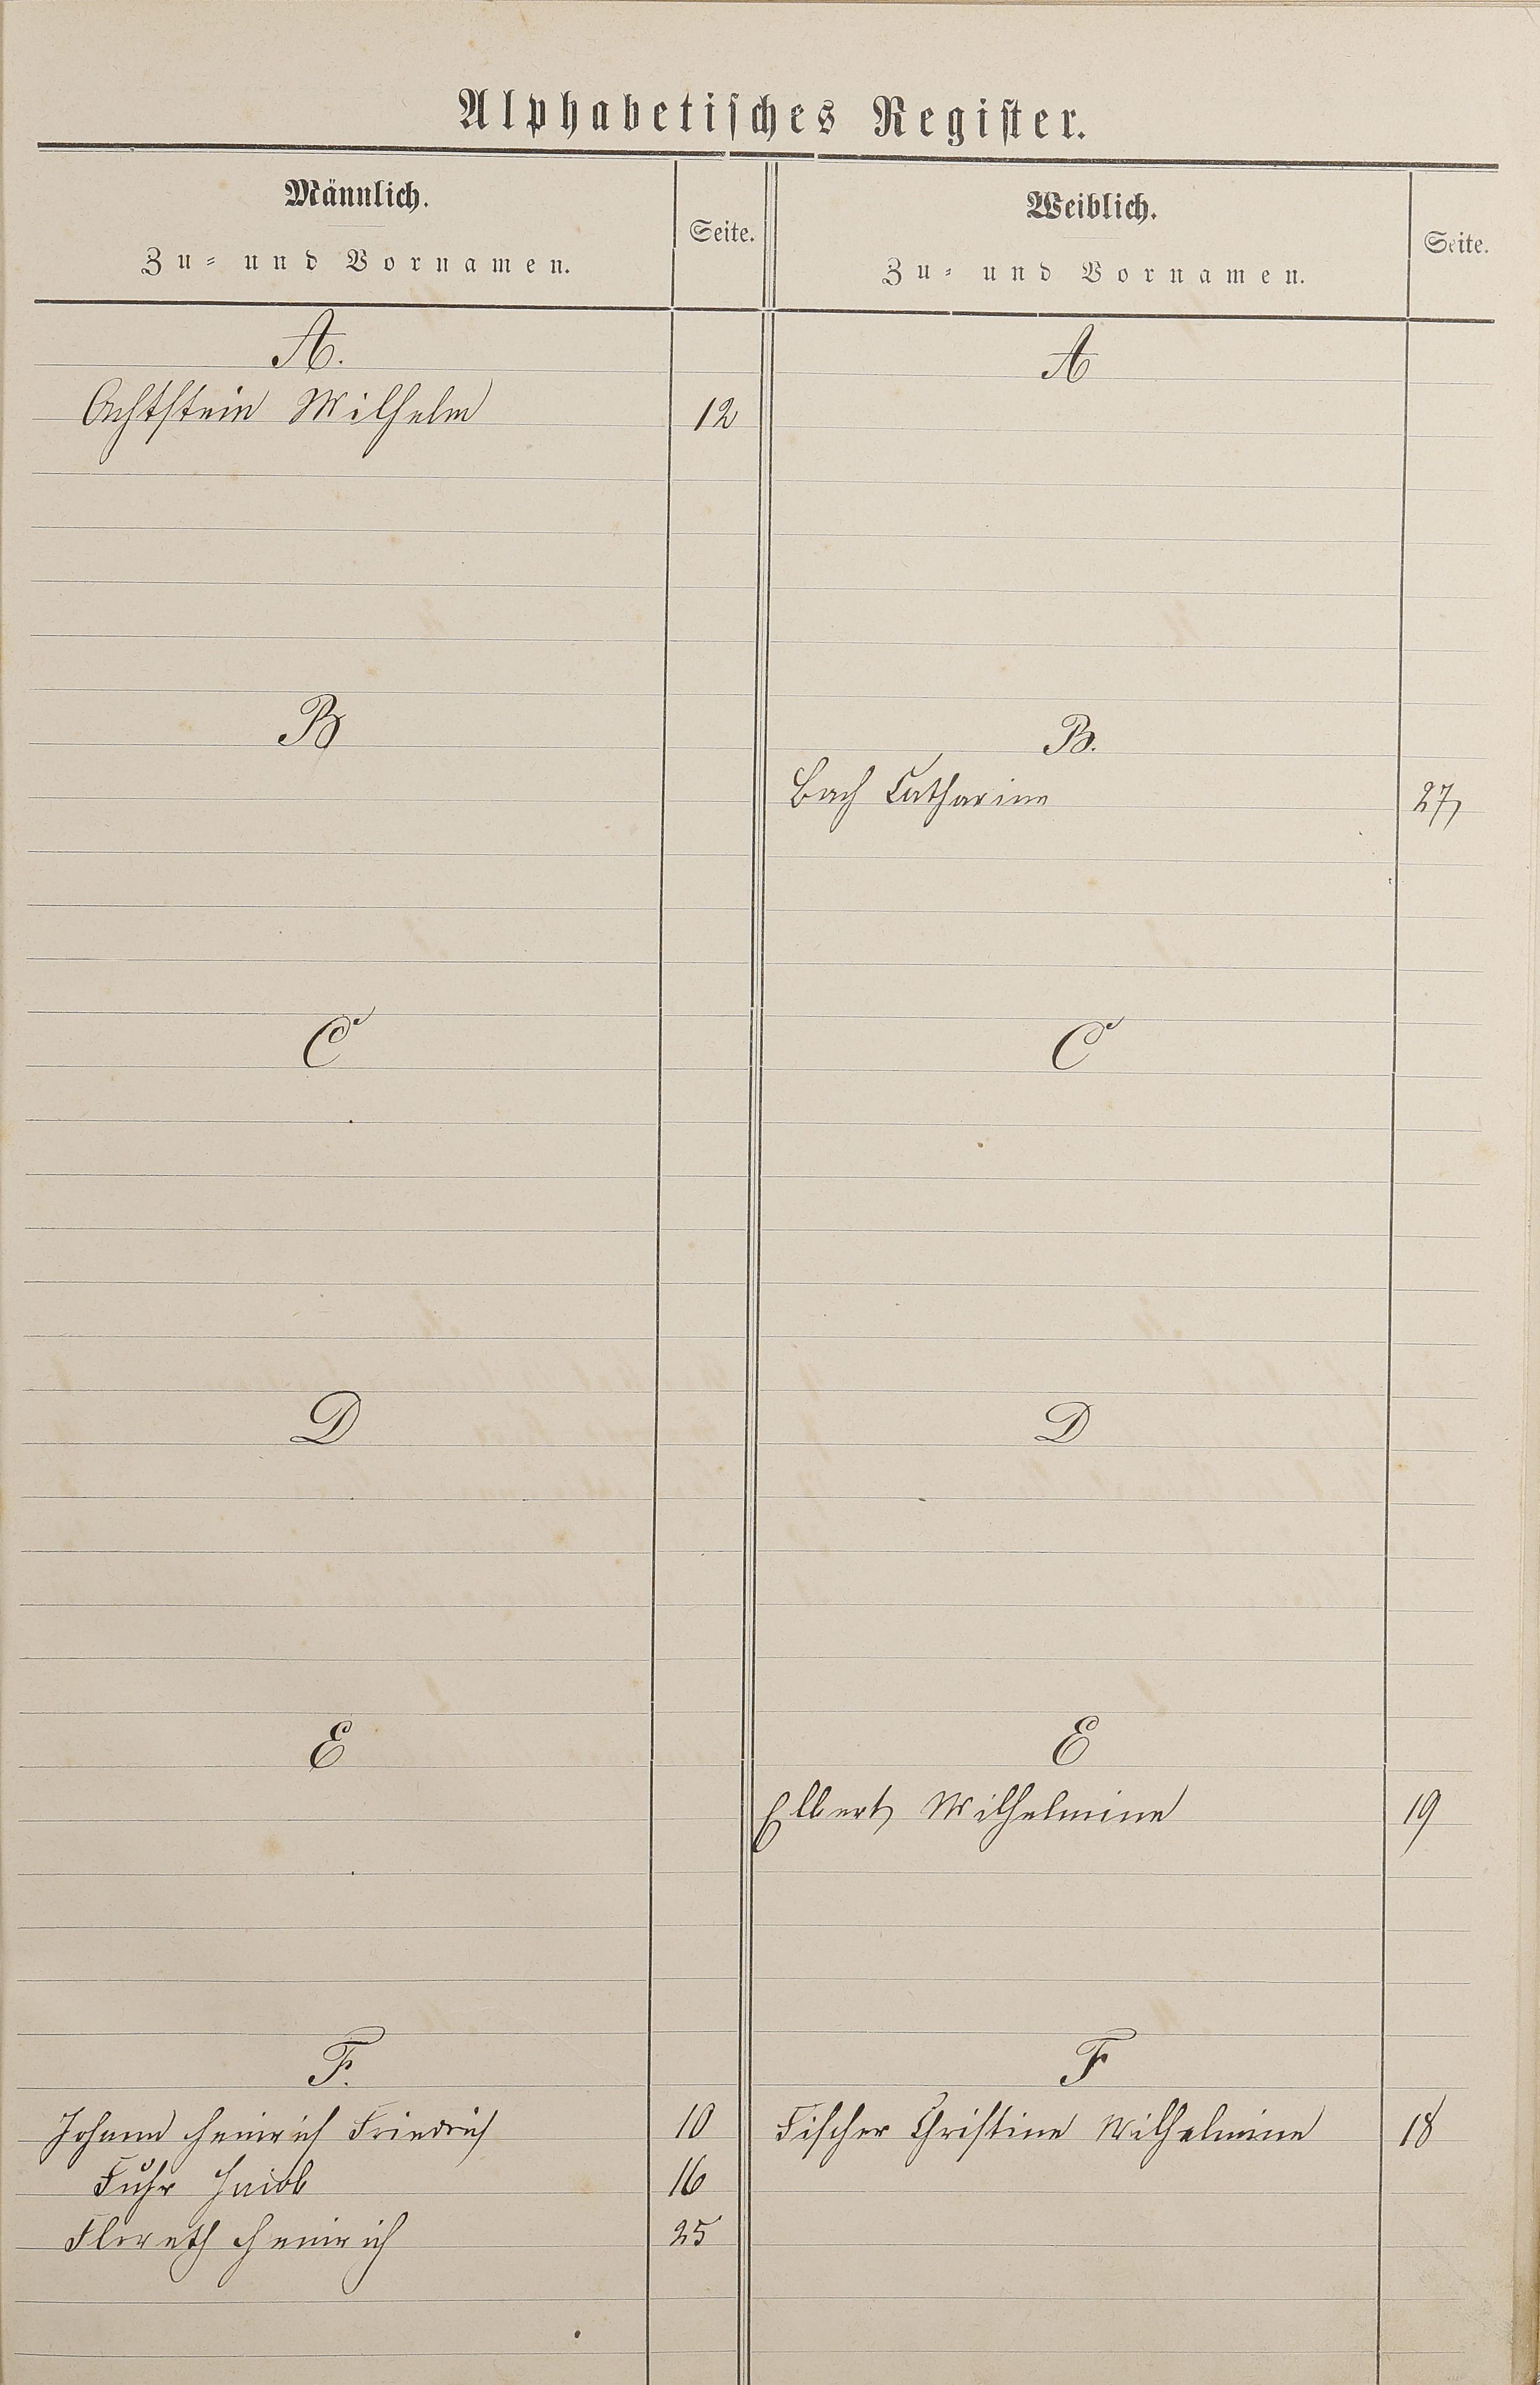 Alphabetisches Register.
Männlich.
Zu- und Vornamen.
Seite.
Weiblich.
Zu- und Vornamen.
Seite.
A.
A
Achtstein Wilhelm 12
B
B.
Bach Catharine 27
C
C
D
D
E
E
Elbert Wilhelmine 19
F.
F
Johann Heinrich Friedrich 10
Fischer Christine Wilhelmine 18
Fuhr Jacob 16
Floreth Heinrich 25